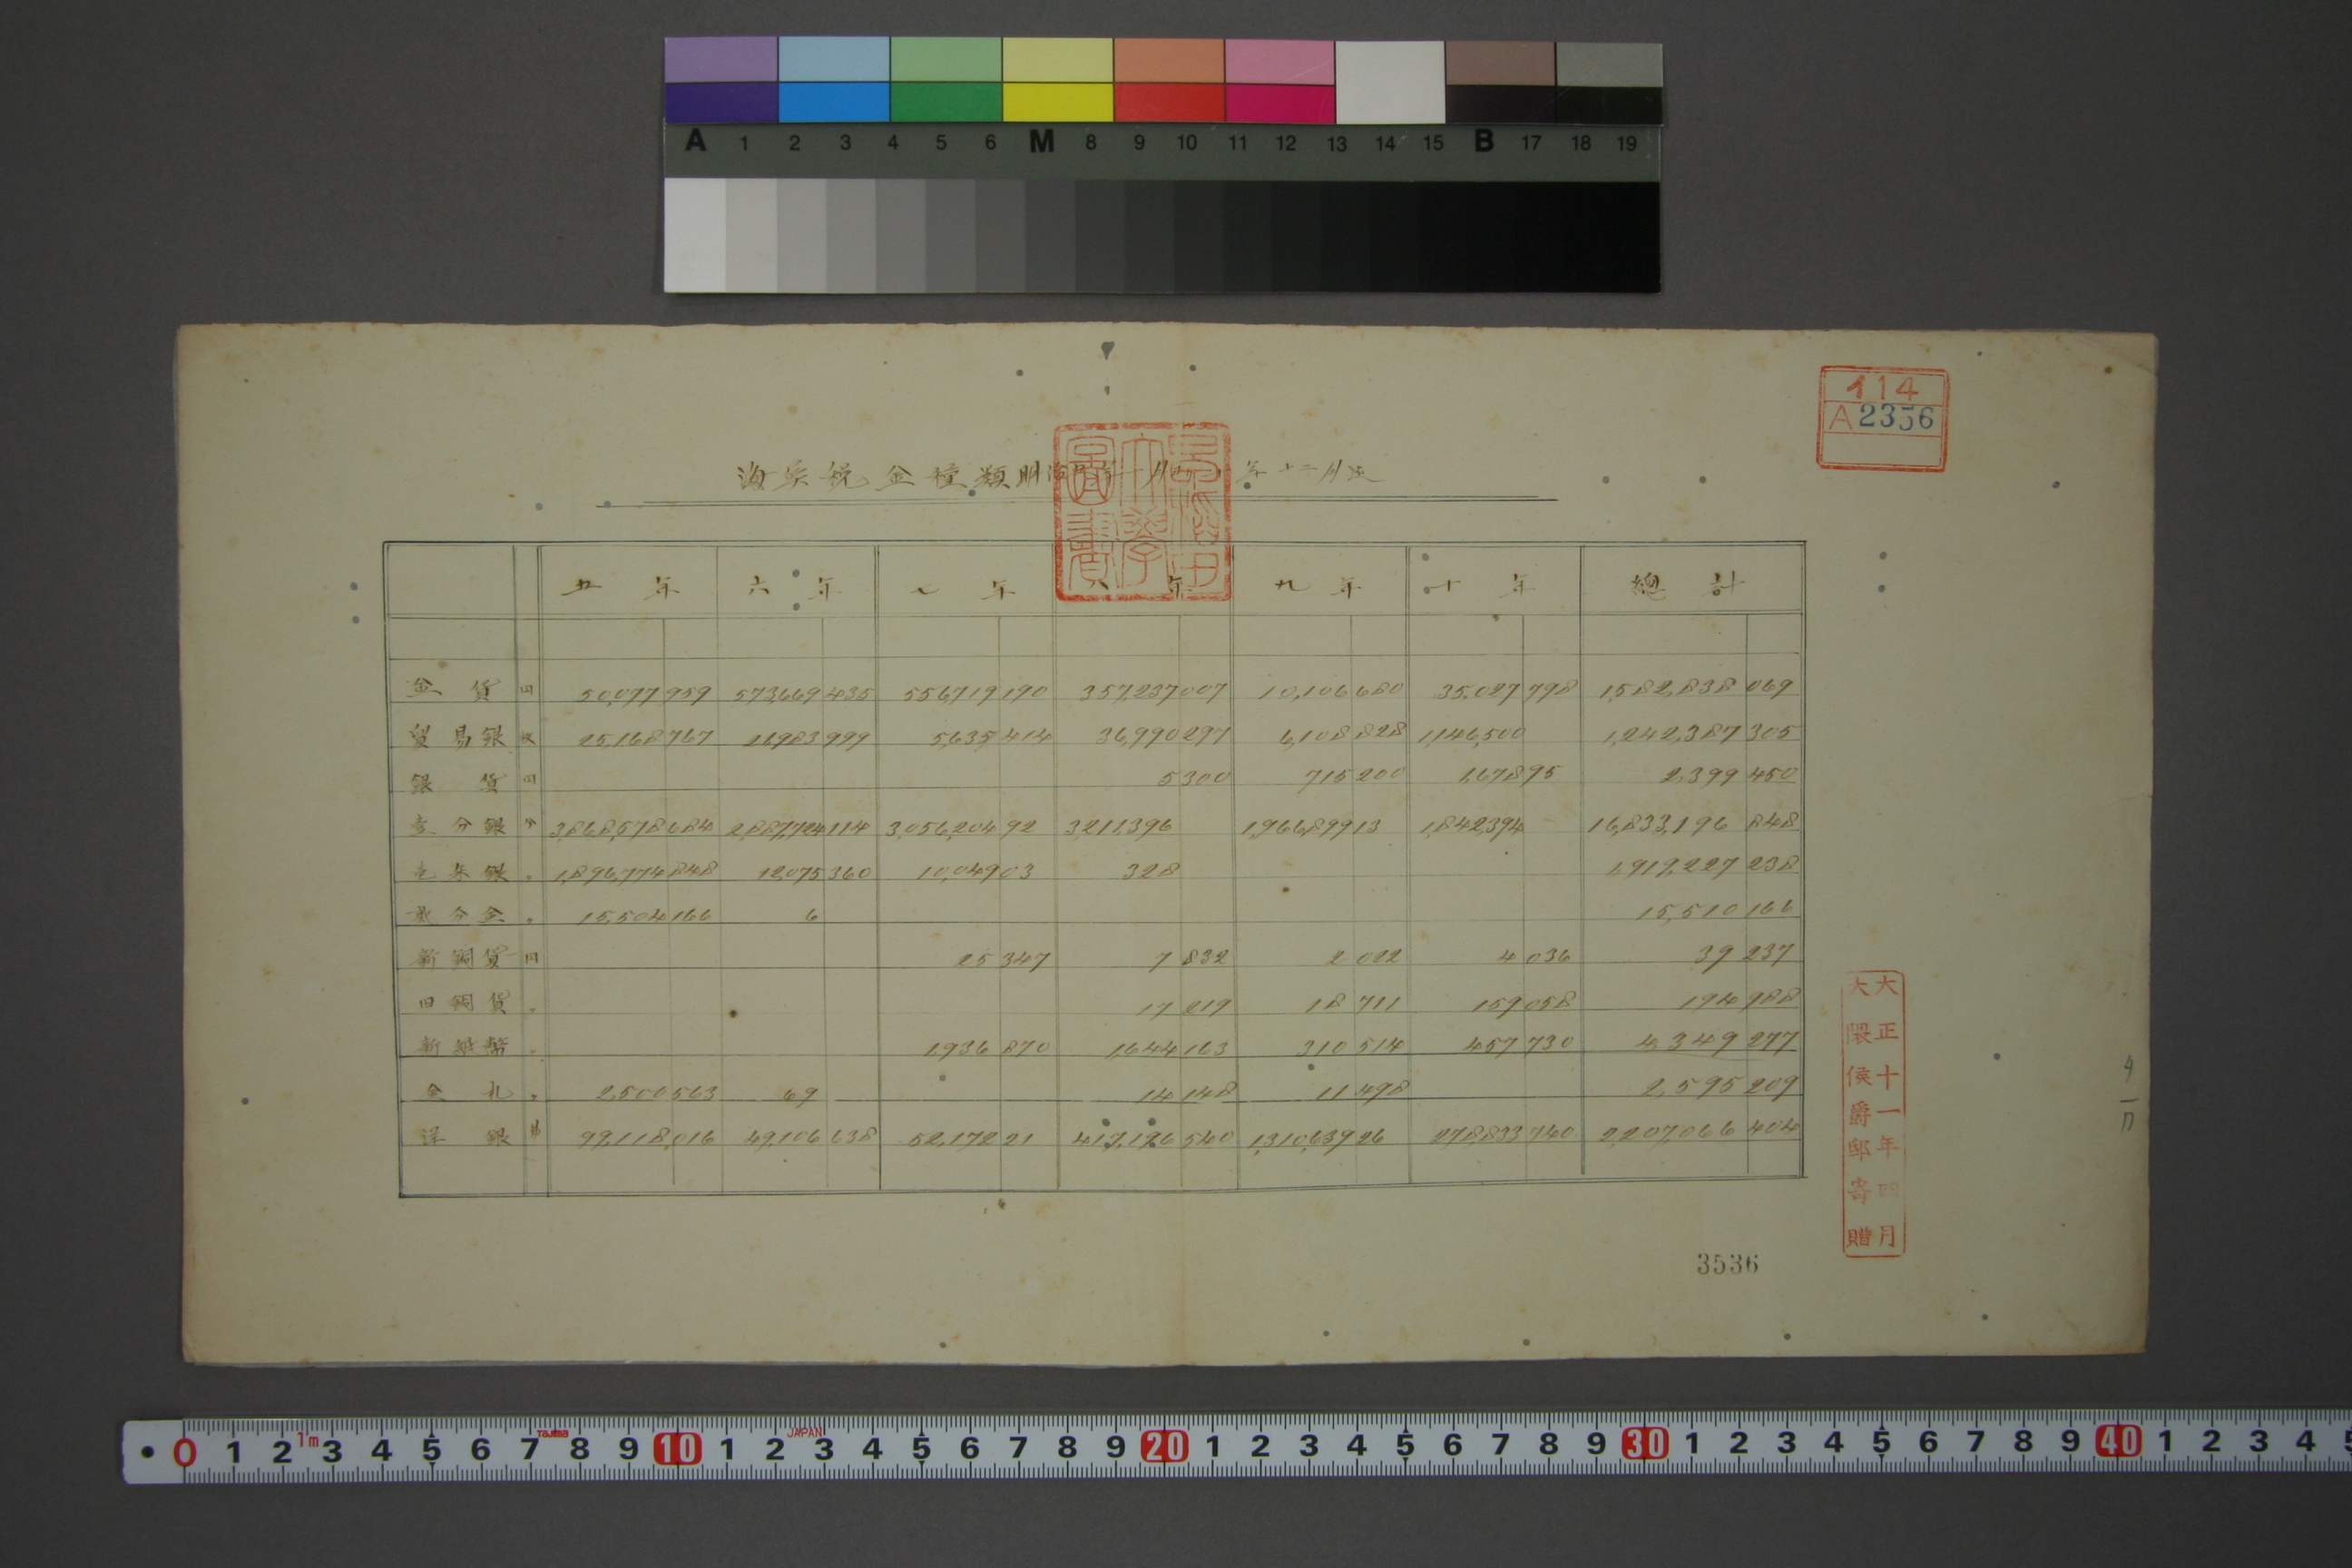 A 1 2 3 4 5 6 M 8 9 10 11 12 13 14 15 B 17 18 19
イ14
A2356
海関税金種類明治五年一月ヨリ十年十二月迄
早稲田大学図書
五年 六年 七年 八年 九年 十年 總計
金貨 円 50,077 959 573,669 435 556,719 190 357,237 007 10,106 680 35,027 798 1,582,838 069
貿易銀 枚 25,168 767 26,983 999 5,635 414 36,990 297 6,108 828 1,146,500 1,242,387 305
銀貨 円 5 300 715 200 1,678 95 2,399 450
壹分銀 分 3,868,578 684 2,887,724 114 3,056,204 92 3,211,396 1,966,899 13 1,842,394 16,833,196 848
壱朱銀 〃 1,896,774 848 12,075 360 10,049 03 328 1,919,227 238
貳分金 〃 15,504 166 6 15,510 166
新銅貨 円 25 347 7 832 2 022 4 036 39 237
旧銅貨 〃 17 219 18 711 159 058 194 988
新紙幣 〃 1,936 870 1,644 163 310 514 457 730 4,349 277
金札 〃 2,500 563 69 14 148 11 498 2,595 209
洋銀 弗 99,118,016 49,106 638 52,172 21 417,126 540 1,310,639 26 278,833 740 2,207,066 404
大正十一年四月
大隈侯爵邸寄贈
3536
0 1 2 1m 3 4 5 6 7 Tajima 8 9 10 1 2 JAPAN 3 4 5 6 7 8 9 20 1 2 3 4 5 6 7 8 9 30 1 2 3 4 5 6 7 8 9 40 1 2 3 4 5